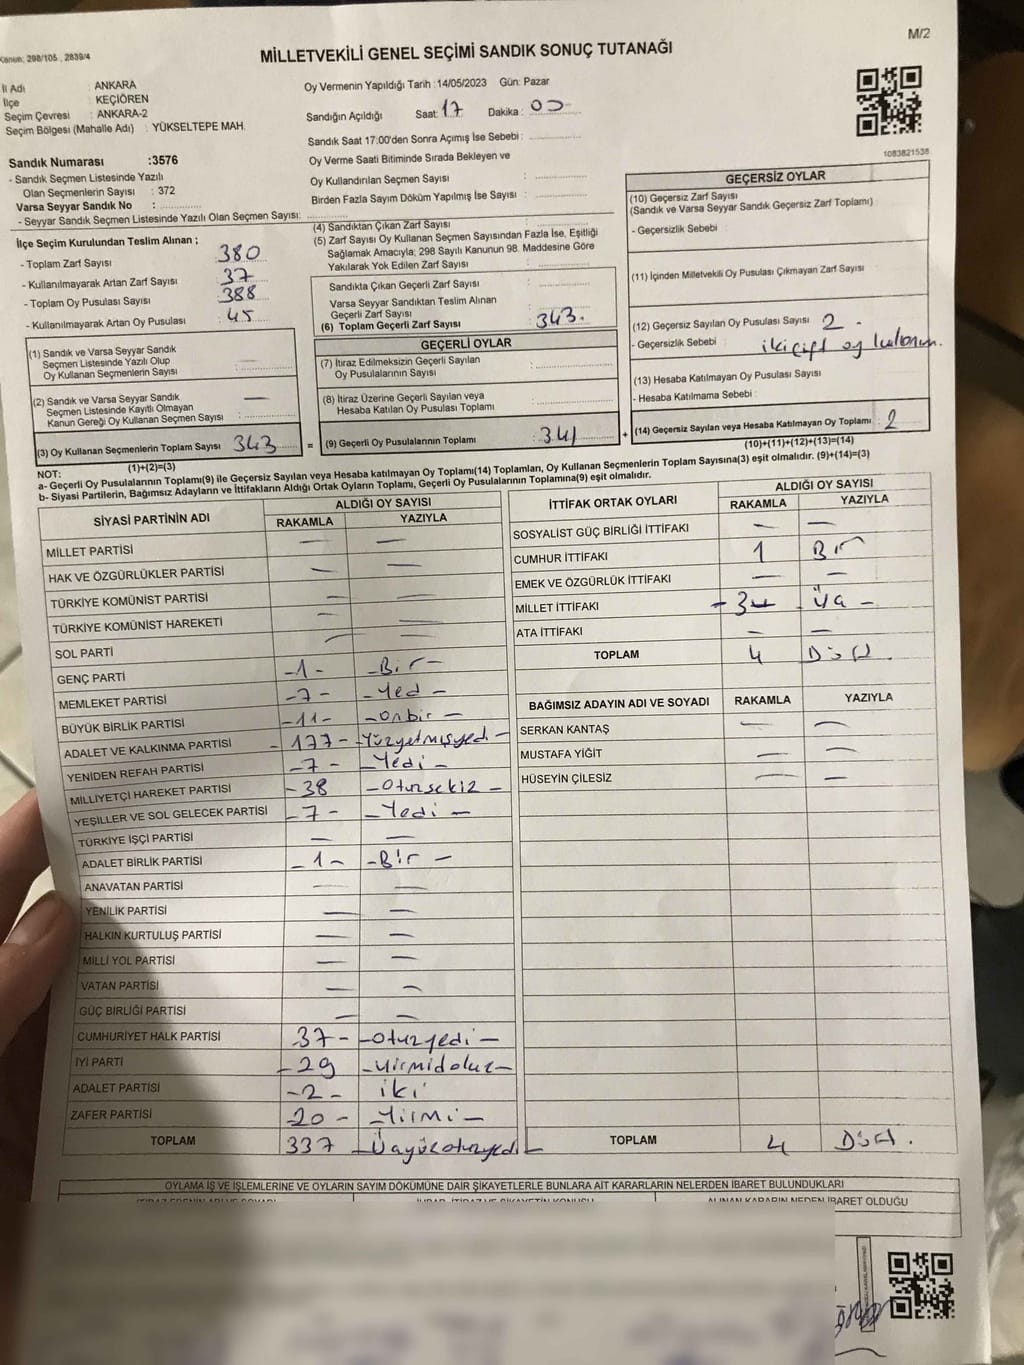 M/2
Kanun: 298/105 , 2839/4
MİLLETVEKİLİ GENEL SEÇİMİ SANDIK SONUÇ TUTANAĞI
İl Adı : ANKARA
İlçe : KEÇİÖREN
Seçim Çevresi : ANKARA-2
Seçim Bölgesi (Mahalle Adı) : YÜKSELTEPE MAH.
Sandık Numarası :3576
- Sandık Seçmen Listesinde Yazılı
Olan Seçmenlerin Sayısı : 372
Varsa Seyyar Sandık No :
- Seyyar Sandık Seçmen Listesinde Yazılı Olan Seçmen Sayısı:
Oy Vermenin Yapıldığı Tarih :14/05/2023 Gün: Pazar
Sandığın Açıldığı Saat: 17 Dakika : 00
Sandık Saat 17:00'den Sonra Açımış İse Sebebi :
Oy Verme Saati Bitiminde Sırada Bekleyen ve
Oy Kullandırılan Seçmen Sayısı :
Birden Fazla Sayım Döküm Yapılmış İse Sayısı :
1083821538
İlçe Seçim Kurulundan Teslim Alınan ;
- Toplam Zarf Sayısı : 380
- Kullanılmayarak Artan Zarf Sayısı : 37
- Toplam Oy Pusulası Sayısı : 388
- Kullanılmayarak Artan Oy Pusulası : 45
(1) Sandık ve Varsa Seyyar Sandık
Seçmen Listesinde Yazılı Olup
Oy Kullanan Seçmenlerin Sayısı : —
(2) Sandık ve Varsa Seyyar Sandık
Seçmen Listesinde Kayıtlı Olmayan
Kanun Gereği Oy Kullanan Seçmen Sayısı : —
(3) Oy Kullanan Seçmenlerin Toplam Sayısı 343
(1)+(2)=(3)
(4) Sandıktan Çıkan Zarf Sayısı :
(5) Zarf Sayısı Oy Kullanan Seçmen Sayısından Fazla İse, Eşitliği
Sağlamak Amacıyla; 298 Sayılı Kanunun 98. Maddesine Göre
Yakılarak Yok Edilen Zarf Sayısı :
Sandıkta Çıkan Geçerli Zarf Sayısı :
Varsa Seyyar Sandıktan Teslim Alınan
Geçerli Zarf Sayısı :
(6) Toplam Geçerli Zarf Sayısı : 343.
GEÇERLİ OYLAR
(7) İtiraz Edilmeksizin Geçerli Sayılan
Oy Pusulalarının Sayısı :
(8) İtiraz Üzerine Geçerli Sayılan veya
Hesaba Katılan Oy Pusulası Toplamı :
= (9) Geçerli Oy Pusulalarının Toplamı : 341 +
GEÇERSİZ OYLAR
(10) Geçersiz Zarf Sayısı
(Sandık ve Varsa Seyyar Sandık Geçersiz Zarf Toplamı) :
- Geçersizlik Sebebi :
(11) İçinden Milletvekili Oy Pusulası Çıkmayan Zarf Sayısı :
(12) Geçersiz Sayılan Oy Pusulası Sayısı : 2 -
- Geçersizlik Sebebi : iki çift oy kullanım.
(13) Hesaba Katılmayan Oy Pusulası Sayısı :
- Hesaba Katılmama Sebebi :
(14) Geçersiz Sayılan veya Hesaba Katılmayan Oy Toplamı : 2
(10)+(11)+(12)+(13)=(14)
NOT:
a- Geçerli Oy Pusulalarının Toplamı(9) ile Geçersiz Sayılan veya Hesaba katılmayan Oy Toplamı(14) Toplamları, Oy Kullanan Seçmenlerin Toplam Sayısına(3) eşit olmalıdır. (9)+(14)=(3)
b- Siyasi Partilerin, Bağımsız Adayların ve İttifakların Aldığı Ortak Oyların Toplamı, Geçerli Oy Pusulalarının Toplamına(9) eşit olmalıdır.
SİYASİ PARTİNİN ADI ALDIĞI OY SAYISI
RAKAMLA YAZIYLA
MİLLET PARTİSİ — —
HAK VE ÖZGÜRLÜKLER PARTİSİ — —
TÜRKİYE KOMÜNİST PARTİSİ — —
TÜRKİYE KOMÜNİST HAREKETİ — —
SOL PARTİ — —
GENÇ PARTİ -1- -Bir-
MEMLEKET PARTİSİ -7- -Yed -
BÜYÜK BİRLİK PARTİSİ -11- -onbir-
ADALET VE KALKINMA PARTİSİ - 177- -Yüzyetmişyed -
YENİDEN REFAH PARTİSİ -7- -Yedi-
MİLLİYETÇİ HAREKET PARTİSİ -38 -Otuzsekiz -
YEŞİLLER VE SOL GELECEK PARTİSİ -7- -Yedi -
TÜRKİYE İŞÇİ PARTİSİ — —
ADALET BİRLİK PARTİSİ -1- -Bir -
ANAVATAN PARTİSİ — —
YENİLİK PARTİSİ — —
HALKIN KURTULUŞ PARTİSİ — —
MİLLİ YOL PARTİSİ — —
VATAN PARTİSİ — —
GÜÇ BİRLİĞİ PARTİSİ — —
CUMHURİYET HALK PARTİSİ 37- -otuzyedi-
İYİ PARTİ -29 -Yirmidokuz-
ADALET PARTİSİ -2- iki
ZAFER PARTİSİ 20- -Yirmi-
TOPLAM 337 -Üçyüzotuzyedi-
İTTİFAK ORTAK OYLARI ALDIĞI OY SAYISI
RAKAMLA YAZIYLA
SOSYALİST GÜÇ BİRLİĞİ İTTİFAKI — —
CUMHUR İTTİFAKI 1 Bir
EMEK VE ÖZGÜRLÜK İTTİFAKI — —
MİLLET İTTİFAKI -3- Üç -
ATA İTTİFAKI — —
TOPLAM 4 Dört
BAĞIMSIZ ADAYIN ADI VE SOYADI RAKAMLA YAZIYLA
SERKAN KANTAŞ — —
MUSTAFA YİĞİT — —
HÜSEYİN ÇİLESİZ — —
TOPLAM 4 Dört.
OYLAMA İŞ VE İŞLEMLERİNE VE OYLARIN SAYIM DÖKÜMÜNE DAİR ŞİKAYETLERLE BUNLARA AİT KARARLARIN NELERDEN İBARET BULUNDUKLARI
İTİRAZ EDENİN ADI VE SOYADI İHBAR, İTİRAZ VE ŞİKAYETİN KONUSU ALINAN KARARIN NEDEN İBARET OLDUĞU